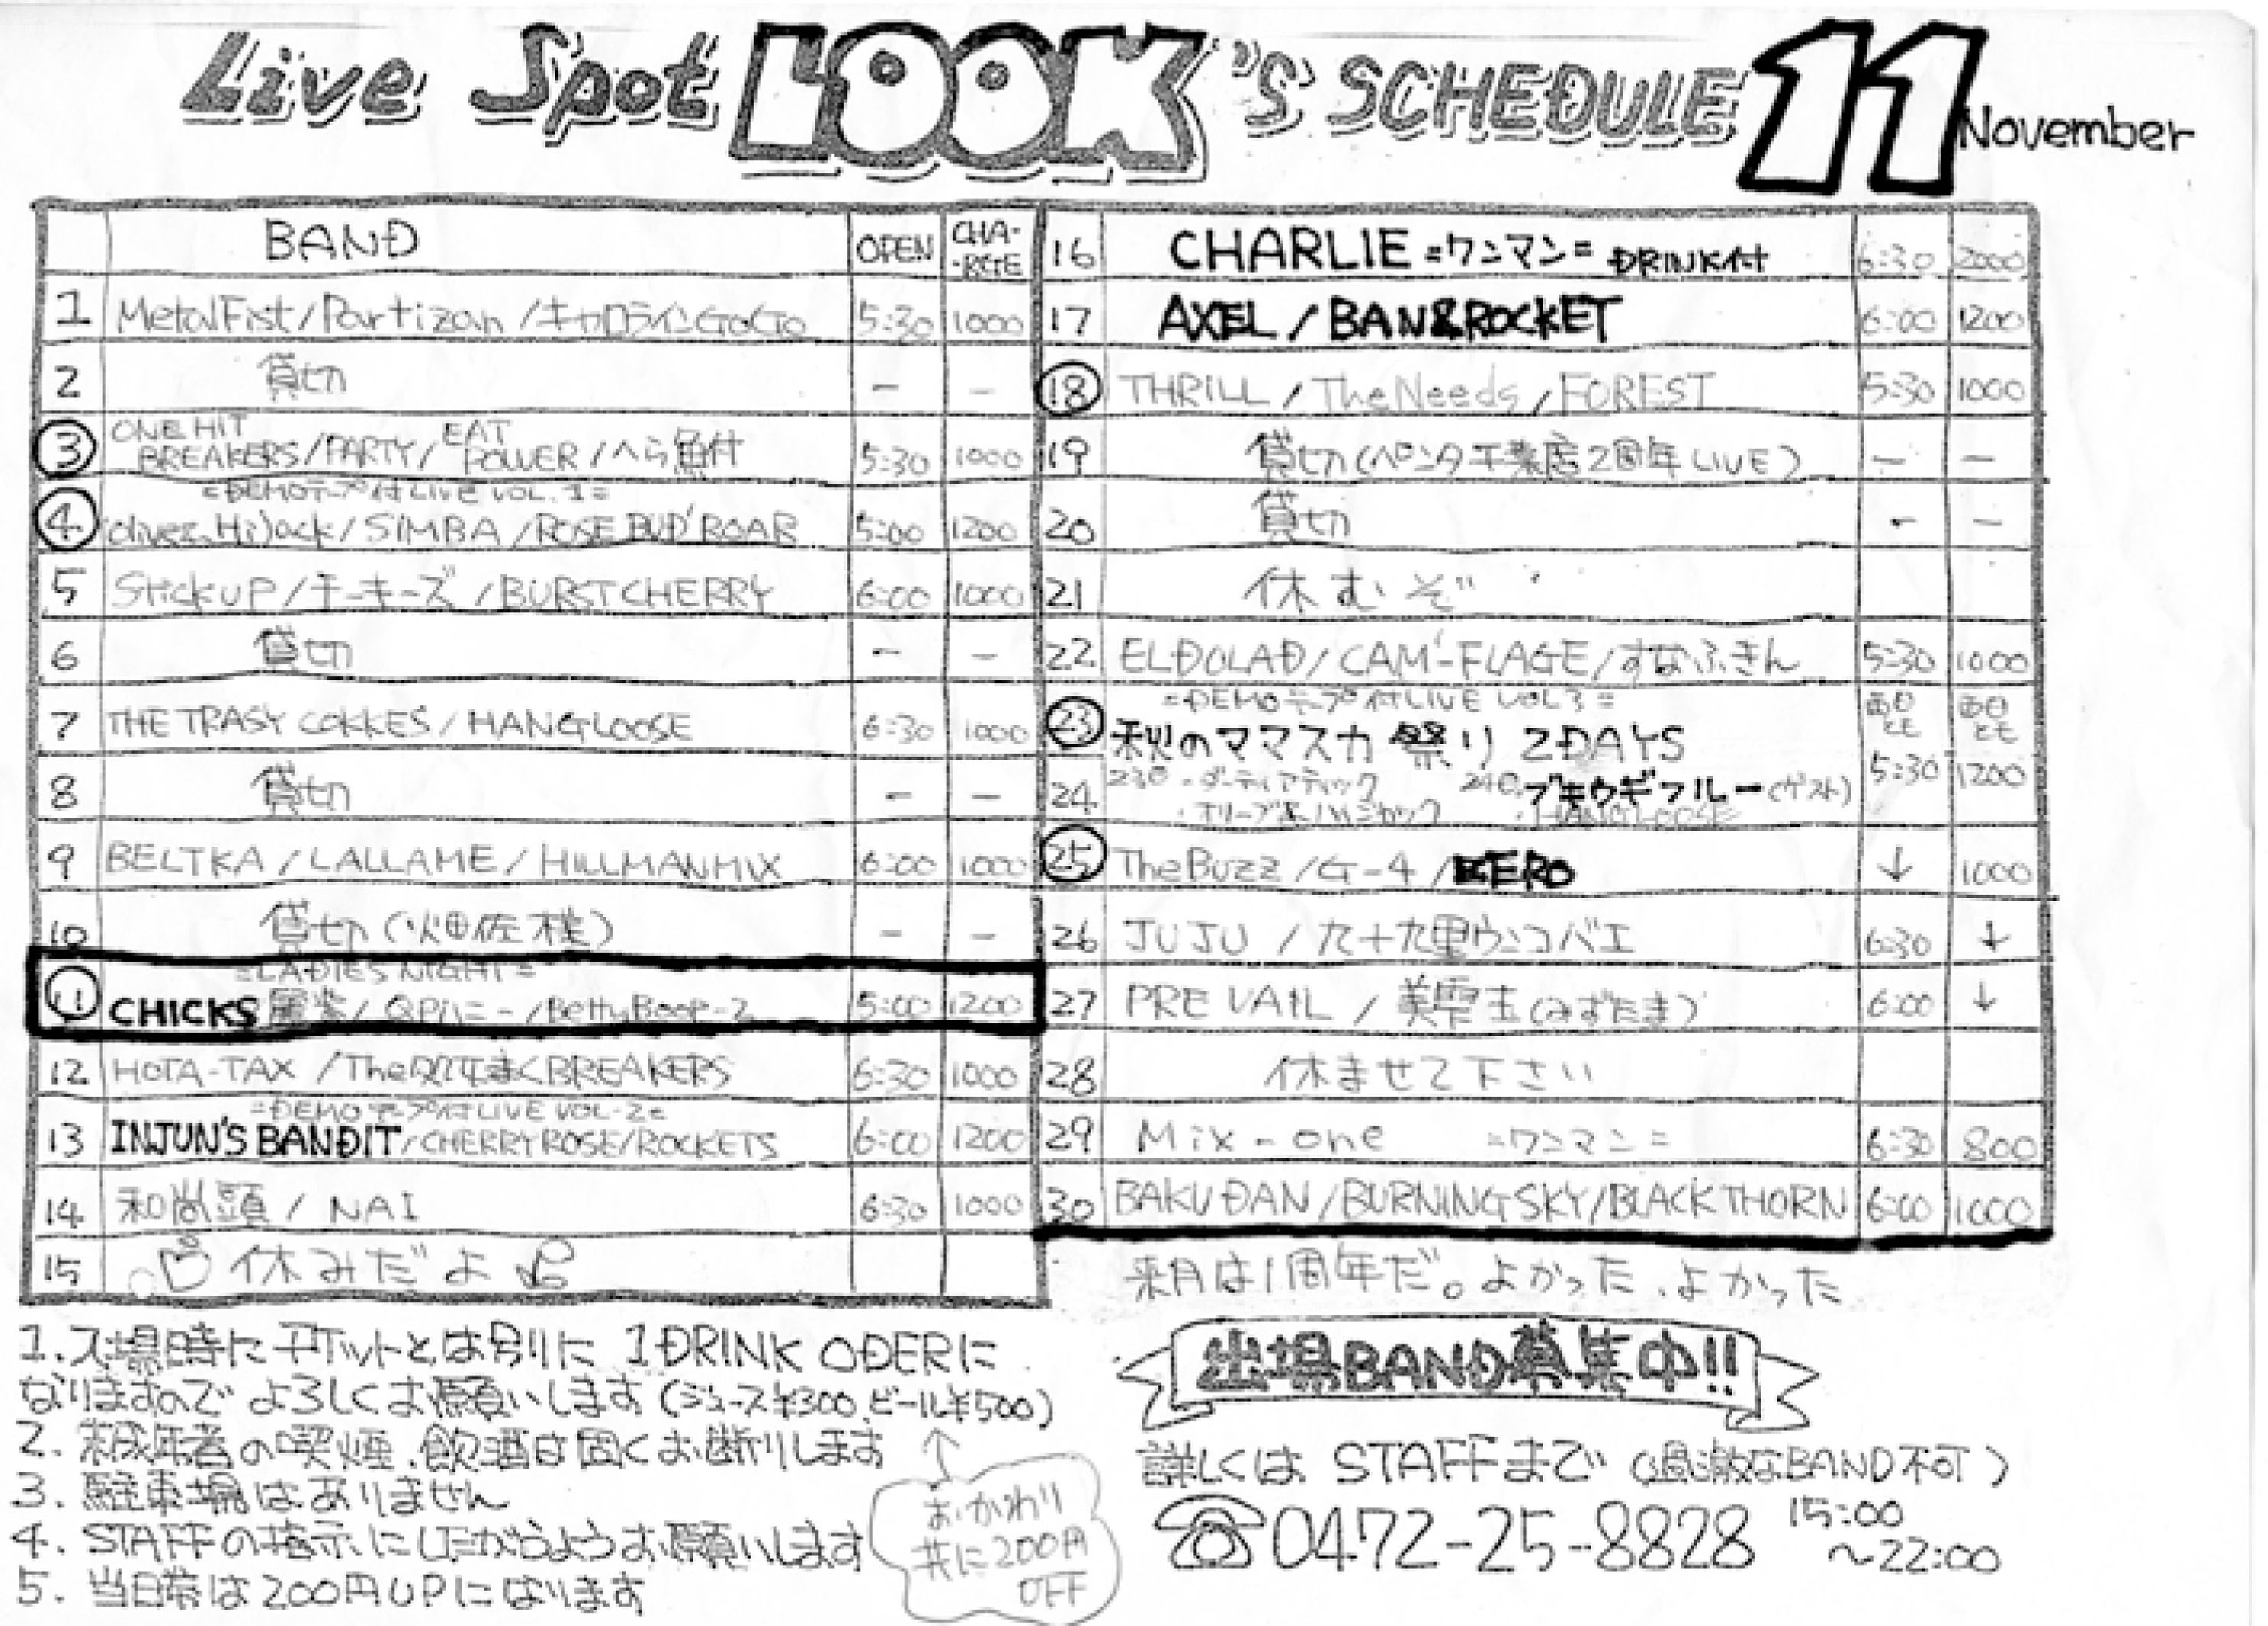 Live Spot LOOK'S SCHEDULE 11 November
BAND OPEN CHA-RGE
1 MetalFist/Partizan/キャロラインGoGo 5:30 1000
2 貸切 - -
③ ONE HIT BREAKERS/PARTY/EAT POWER/へら魚付 5:30 1000
=DEMOテープ付LIVE VOL.1=
④ HiJack/SIMBA/ROSE BUD'ROAR 5:00 1200
5 StickUP/チーキーズ/BURST CHERRY 6:00 1000
6 貸切 - -
7 THE TRASY COKKES/HANGLOOSE 6:30 1000
8 貸切 - -
9 BELTKA/LALLAME/HILLMANMIX 6:00 1000
10 貸切(畑佐様) - -
=LADIES NIGHT=
⑪ CHICKS/QPハニー/BettyBoop-2 5:00 1200
12 HOTA-TAX/The BREAKERS 6:30 1000
=DEMOテープ付LIVE VOL-2=
13 INJUN'S BANDIT/CHERRY ROSE/ROCKETS 6:00 1200
14 和尚頭/NAI 6:30 1000
15 休みだよ
16 CHARLIE =ワンマン= DRINK付 6:30 2000
17 AXEL/BAN&ROCKET 6:00 1200
⑱ THRILL/TheNeeds/FOREST 5:30 1000
19 貸切(ペンタ千葉店2周年LIVE) - -
20 貸切 - -
21 休むぞ
22 ELDOLAD/CAM'-FLAGE/すなふきん 5:30 1000
=DEMOテープ付LIVE VOL3=
㉓ 秋のママスカ祭り 2DAYS 両日とも 両日とも
5:30 1200
24 23日・ダーティアティック 24日・ブキウギフルー(ゲスト)
・オリーブ&ハイジャック ・HANGLOOSE
㉕ TheBuzz/G-4/ZERO ↓ 1000
26 JUJU/九十九里ウンコバエ 6:30 ↓
27 PREVAIL/美雫玉(みずたま) 6:00 ↓
28 休ませて下さい
29 Mix-one =ワンマン= 6:30 800
30 BAKUDAN/BURNING SKY/BLACK THORN 6:00 1000
来月は1周年だ。よかった、よかった
1. 入場時にチケットとは別りに 1DRINK ODERに
なりますので よろしくお願いします(ジュース¥300、ビール¥500)
2. 未成年者の喫煙、飲酒は固くお断りします
3. 駐車場はありません
4. STAFFの指示にしたがうようお願いします
5. 当日券は200円UPになります
↑
おかわり
共に200円
OFF
出場BAND募集中!!
詳しくは STAFFまで(過激なBAND不可)
☎0472-25-8828 15:00
~22:00